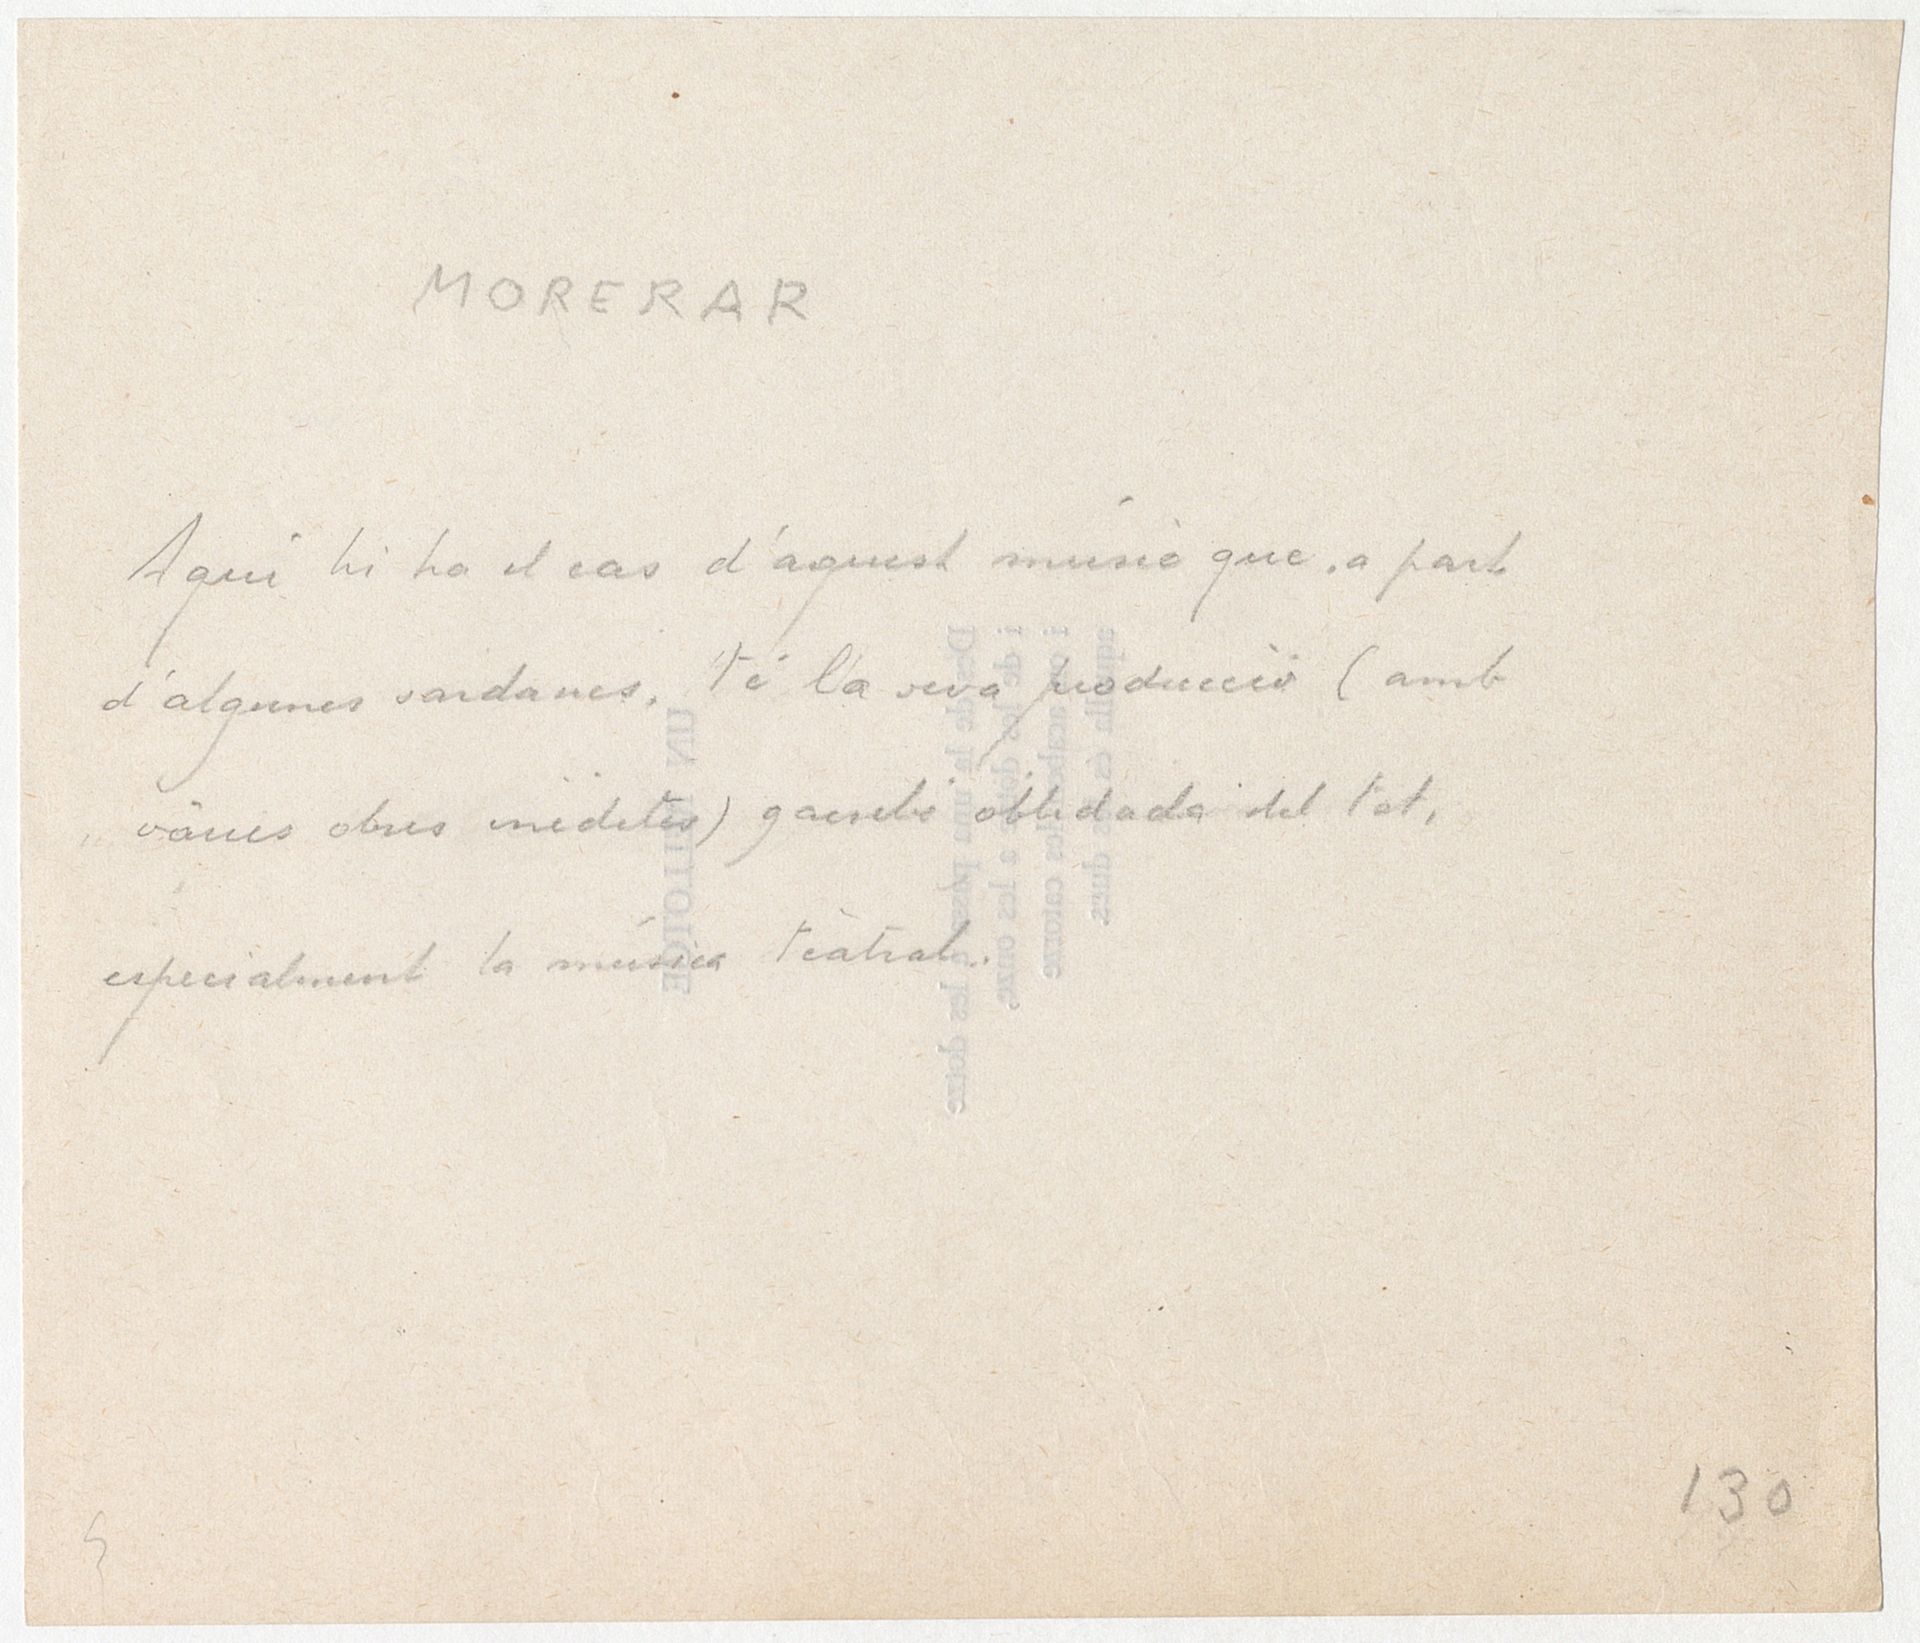 MORERAR
Aquí hi ha el cas d'aquest músic que, a part
d'algunes sardanes, té la seva producció (amb
vàries obres inèdites) gairebé oblidada del tot,
especialment la música teatral.
130